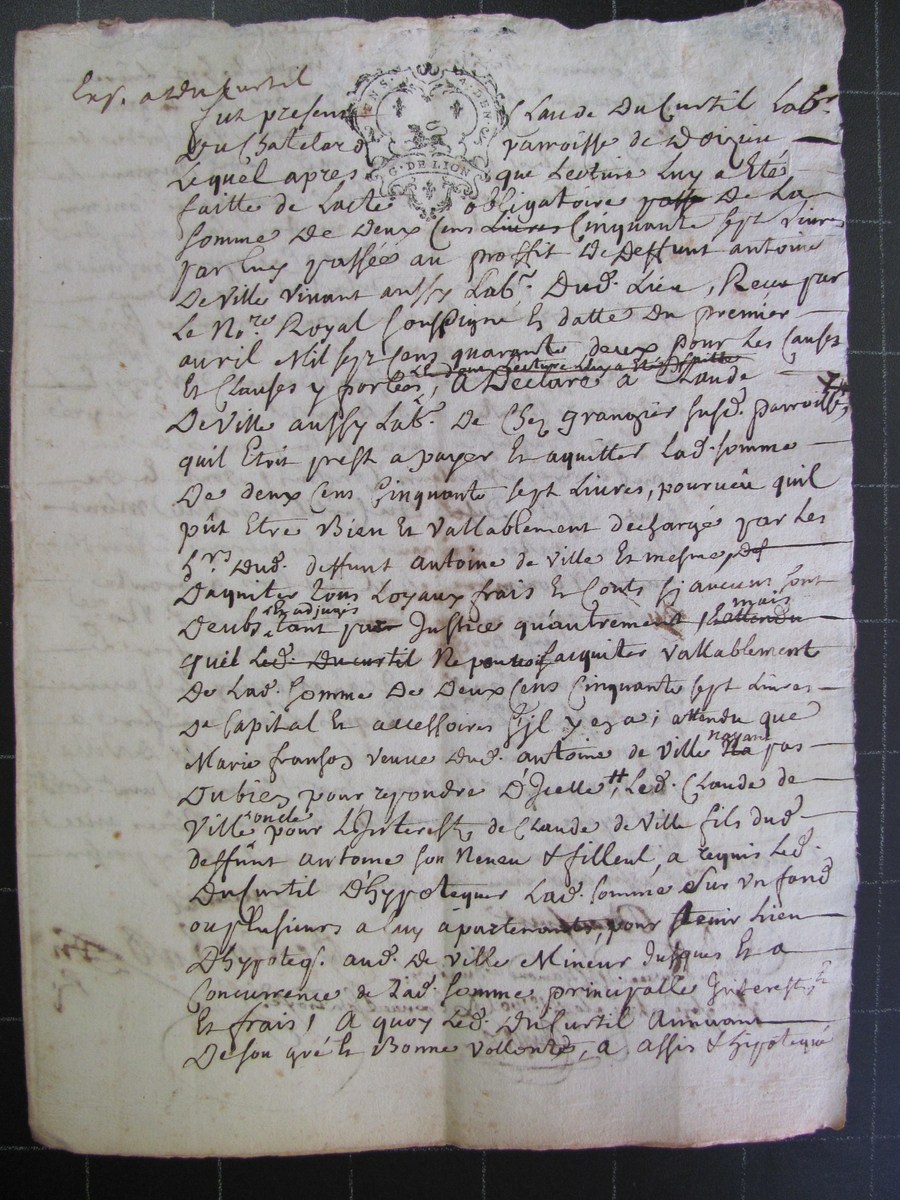 Exp. a duCurtil
fut present Claude DuCurtil Labr.
Du Chatelard parroisse de Doizieu
Lequel apres que Lecture Luy a Eté
faitte de Lacte obligatoire passé De La
G. DE LION
somme De Deux Cens Livres Cinquante sept Livres
par Luy passée au proffit De Deffunt antoine
De Ville vivant aussy Labr. Dud. Lieu, Receu par
Le Nore. Royal soussigné Et datte Du premier
avril Mil sept Cens quarante deux pour Les Causes
Et Clauses y portées, A Declaré a Claude
De Ville aussy Labr. De Chez granozier susd. parroisse,
quil Etoit prest a payer Et aquitter Lad. somme
De deux Cens Cinquante sept Livres, pourvëu quil
pût Etre Bien Et vallablement dechargé par Les
hrs. Dud. deffunt antoine de ville Et mesme
Daquiter tous Loyaux frais Et Couts sy aucuns sont
Deubs Et adjugés tant par Justice qu'autrement, mais
quil Led. Ducurtil Ne pouvoit saquiter vallablement
De Lad. somme De Deux Cens Cinquante sept Livres
De Capital Et accessoires s'jl y en a; attendu que
Marie franson veuve Dud. antoine de ville Nayant pas
Du bien pour repondre D'Jcelle, Led. Claude de
Ville oncle pour L'Jnterest de Claude de ville fils dud.
deffünt antoine son Neveu & filleul, a requis Led.
DuCurtil D'hypotequer Lad. somme Sur un fond
ou plusieurs a luy apartenants, pour tenir Lieu
D'hypoteq. aud. de ville Mineur Jusques Et a
Concurrence de Lad. somme principalle Jnterests
Et frais; A quoy Led. DuCurtil
De son gré Et Bonne vollonté, a assis & hipotequé